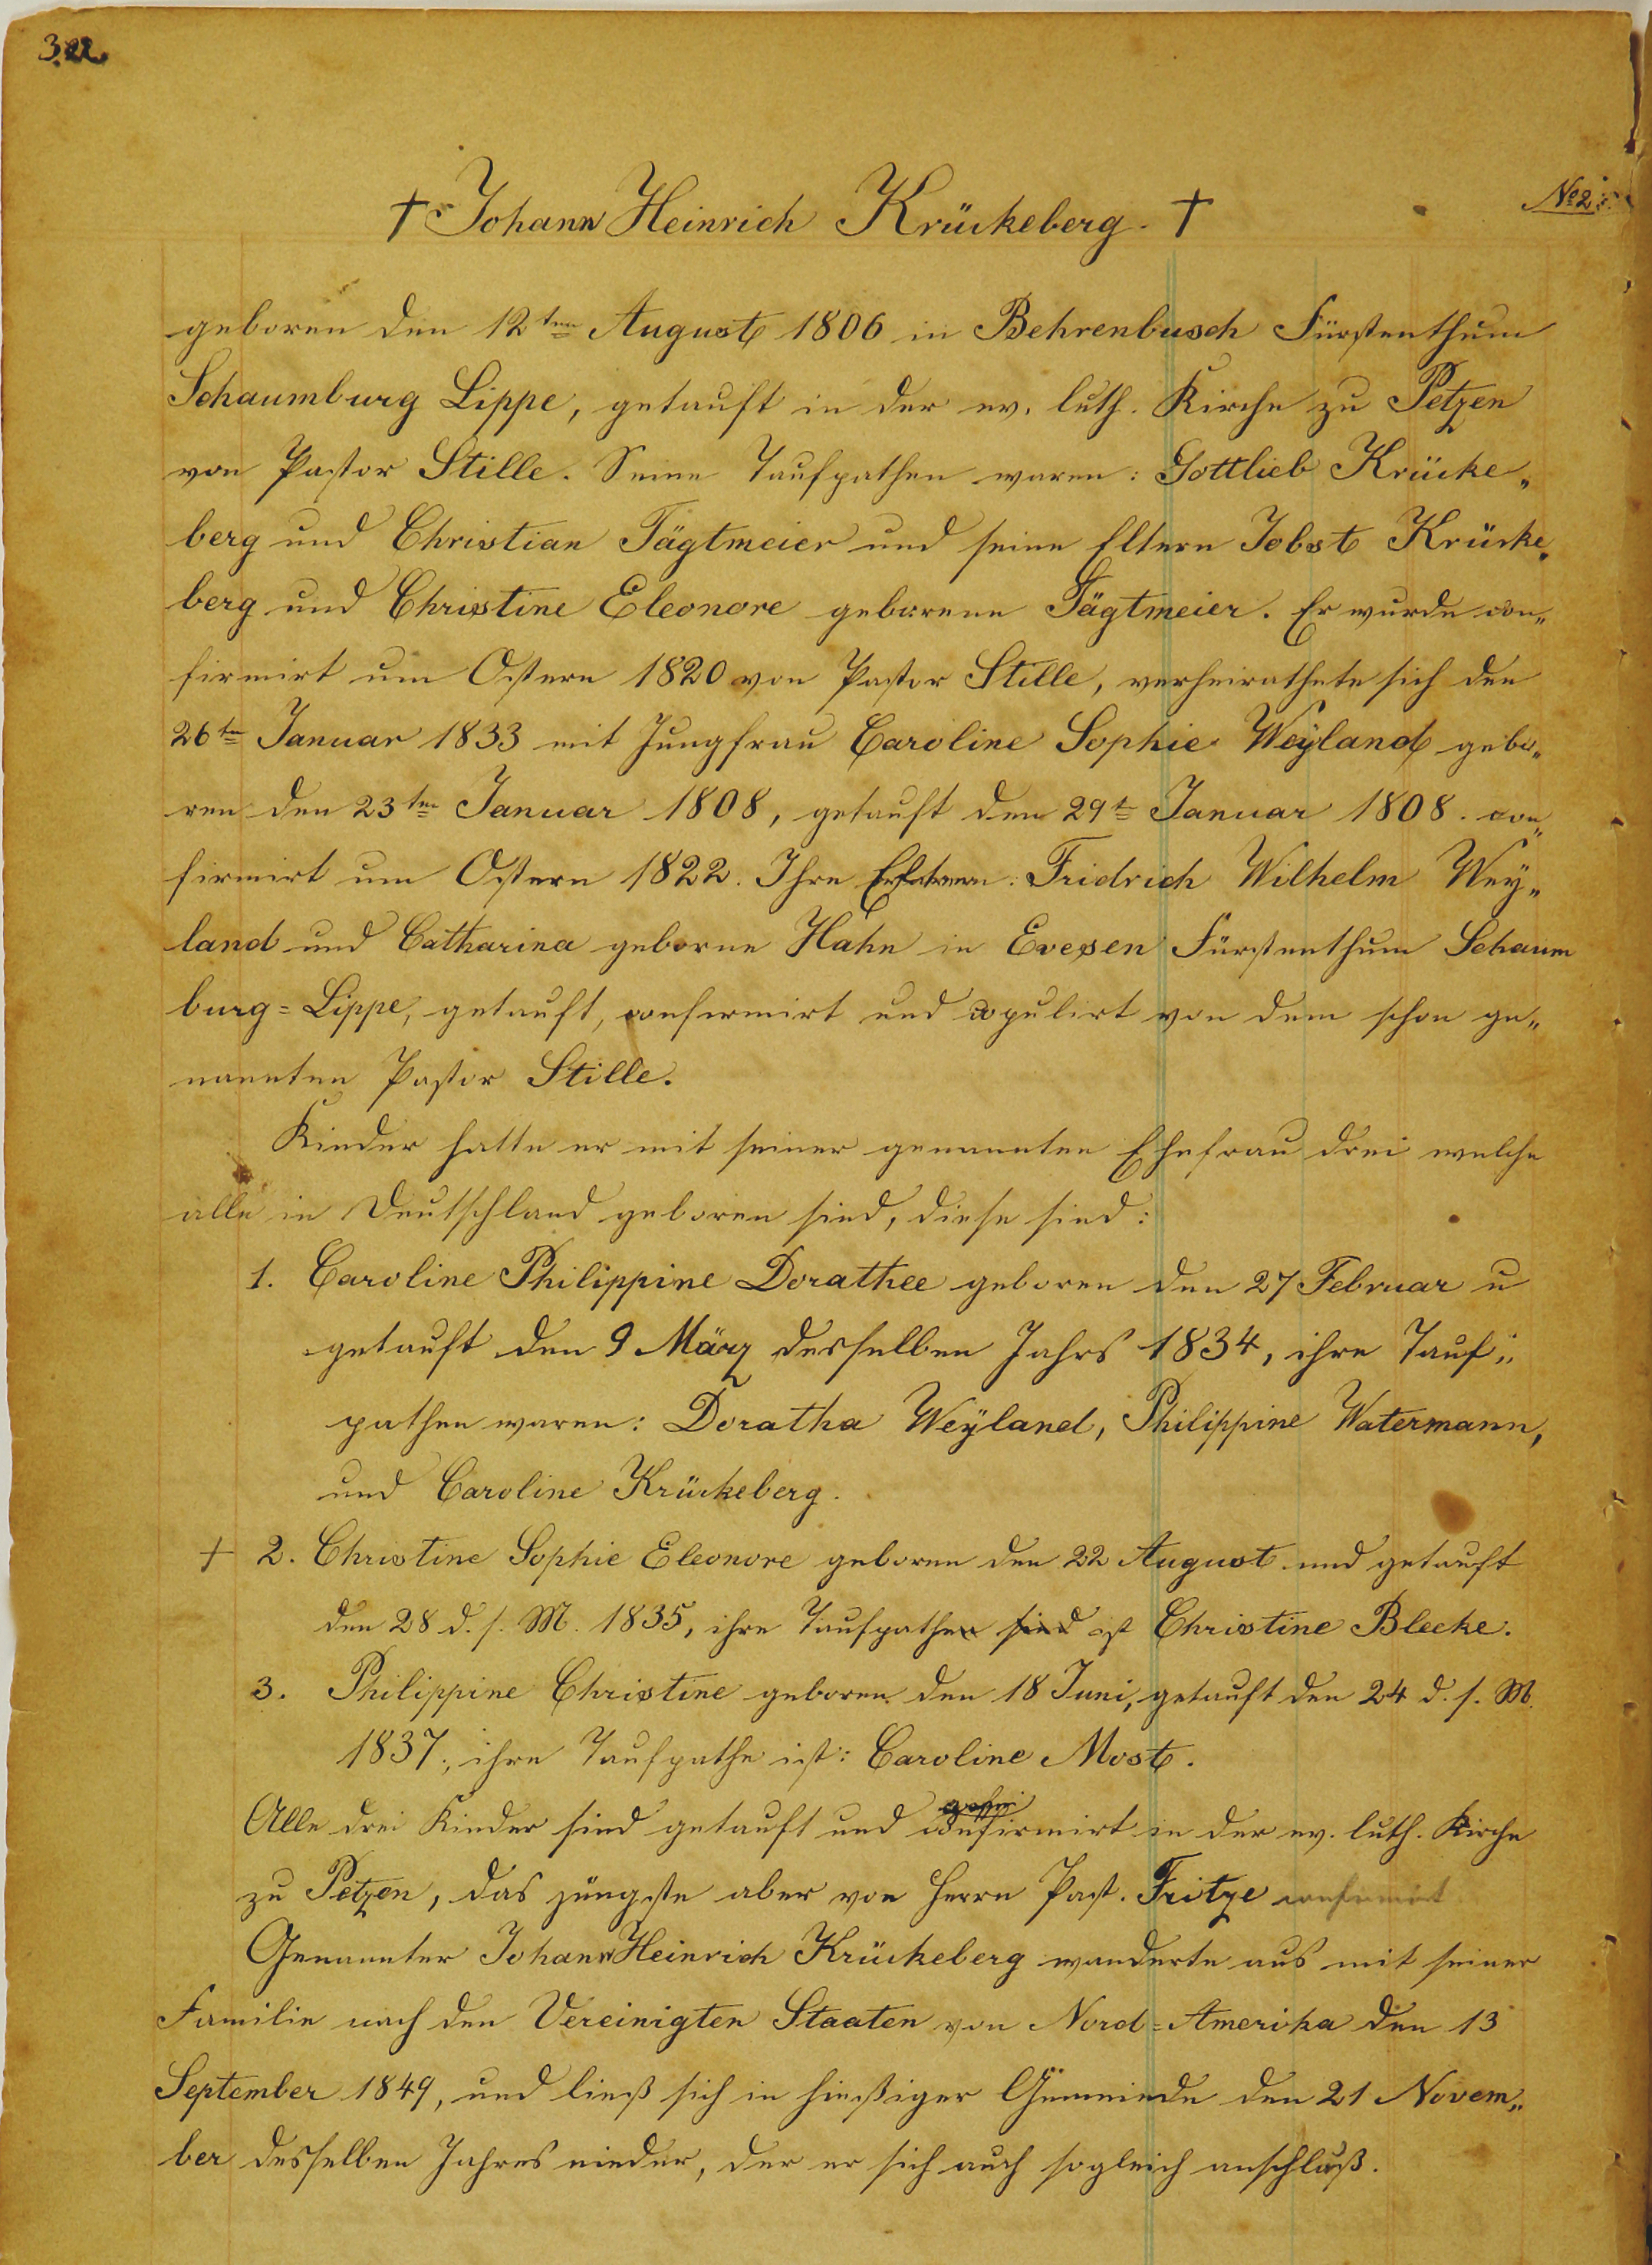 † Johann Heinrich Krückeberg. †
No 2.
geboren den 12ten August 1806 in Behrenbusch Fürstenthum
Schaumburg Lippe, getauft in der ev. luth. Kirche zu Petzen
von Pastor Stille. Seine Taufpathen waren: Gottlieb Krücke„
berg und Christian Tägtmeier und seine Eltern Jobst Krücke„
berg und Christine Eleonore geborene Tägtmeier. Er wurde con„
firmirt um Ostern 1820 von Pastor Stille, verheirathete sich den
26ten Januar 1833 mit Jungfrau Caroline Sophie Weÿland gebo„
ren den 23ten Januar 1808, getauft den 29t Januar 1808. con„
firmirt um Ostern 1822. Ihre Fridrich Wilhelm Wey„
land und Catharina geborne Hahn in Evesen Fürstenthum Schaum
burg=Lippe, getauft, confirmirt und copulirt von dem schon ge„
nannten Pastor Stille.
Kinder hatte er mit seiner genannten Ehefrau drei welche
alle in Deutschland geboren sind, diese sind:
1. Caroline Philippine Dorathee geboren den 27 Februar u
getauft den 9 März desselben Jahrs 1834, ihre Tauf„
pathen waren: Doratha Weÿland, Philippine Watermann,
und Caroline Krückeberg.
† 2. Christine Sophie Eleonore geboren den 22 August und getauft
den 28 d. s. M. 1835, ihre Taufpathen sind ist Christine Blecke.
3. Philippine Christine geboren den 18 Juni, getauft den 24 d. s. M.
1837, ihre Taufpathe ist: Caroline Most.
Alle drei Kinder sind getauft und confirmirt in der ev. luth. Kirche
zu Petzen, das jüngste aber von Herrn Past. Fritze confirmirt
Genannter Johann Heinrich Krückeberg wanderte aus mit seiner
Familie nach den Vereinigten Staaten von Nord=Amerika den 13
September 1849, und ließ sich in hießiger Gemeinde den 21 Novem„
ber desselben Jahres nieder, der er sich auch sogleich anschluß.